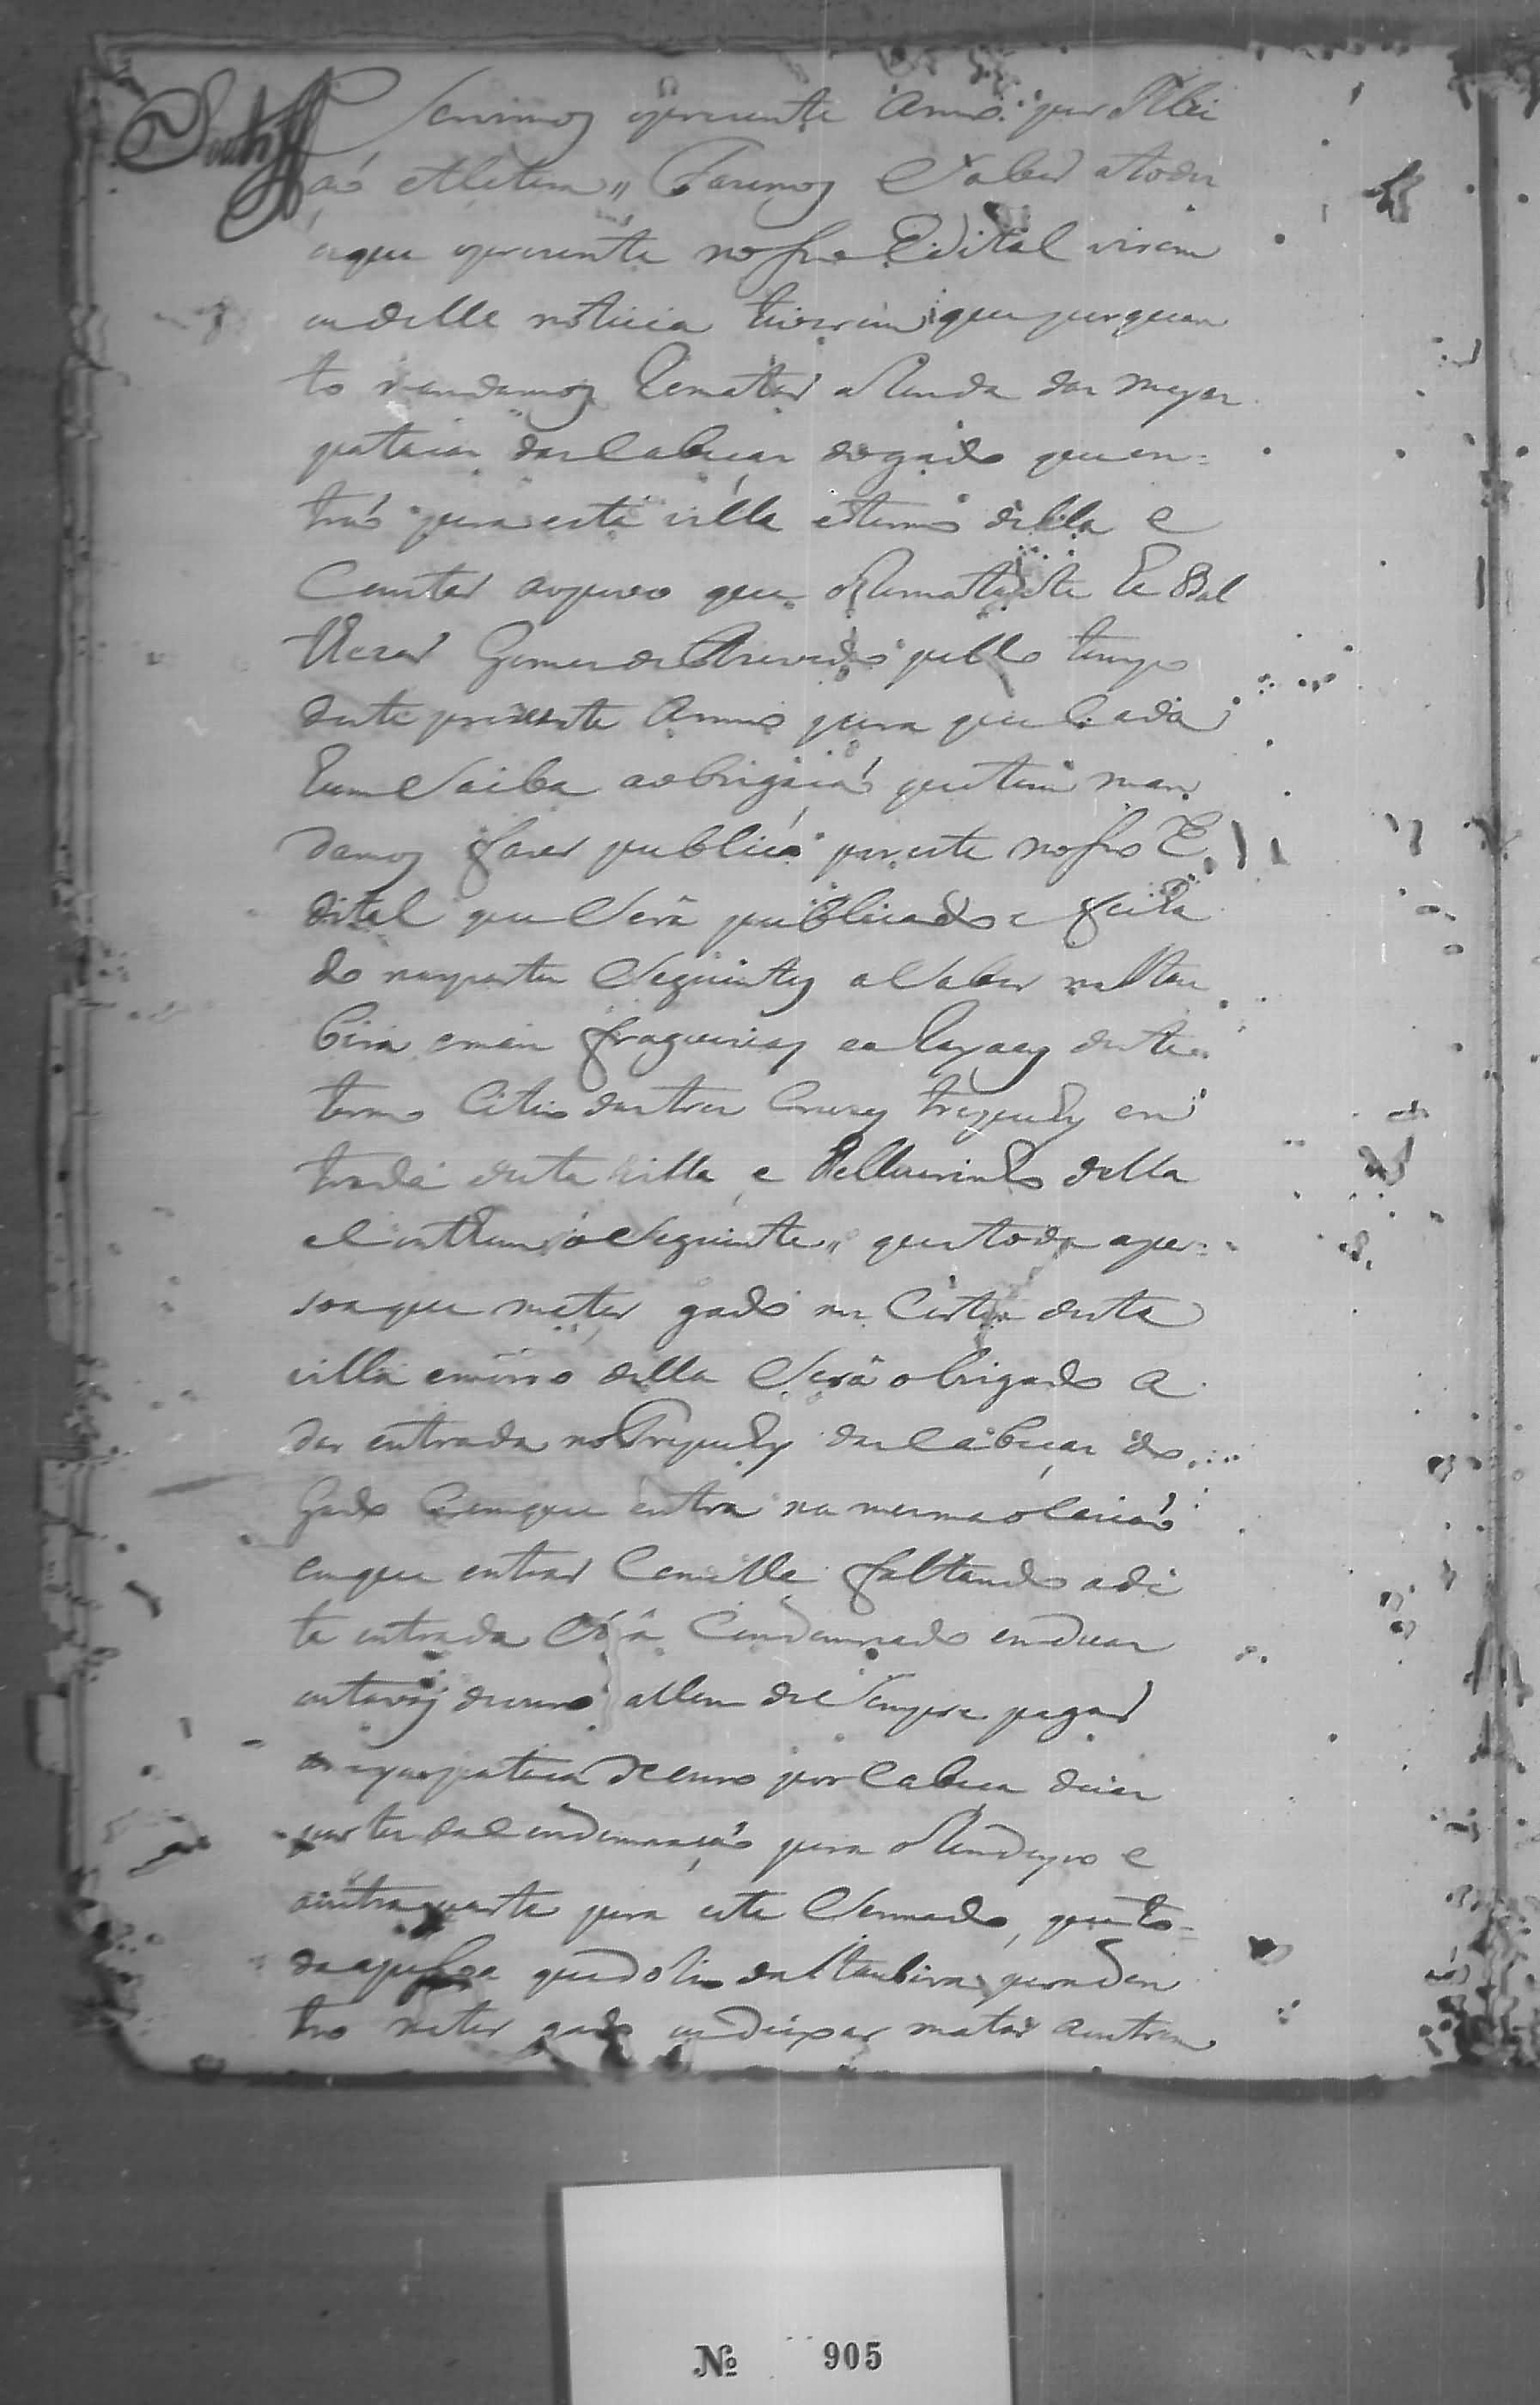 Servimos opresente Anno por Ellei
çaõ etLetera,, Fasemos Saber atodos
osque opresente nosso Edital virem
oudelle noticia tiverem que porquan
to mandamos Rematar aRenda das meyas
patacas das Cabeças dogado que en=
trar para esta villa etermo della e
Contar oreyno que oRematante he Bal
thezar Gomes de Azevedo pello tempo
deste prezente Anno para que Cada
hum Saiba aobrigaçaõ que tem man
damos fazer publico por este nosso E
dital que Será publicado e feixa
do nas partes Seguintes aSaber na Itau
bira emais freguezias eaRayaes deste
termo Citio das tres Cruzes tripuhy en
trada desta villa, e Pellourinho della
eContheudo oSeguinte,, que toda apes=
soa que meter gado no Citio desta
villa etermo della Será obrigado a
dar entrada noTripuhy das Cabeças do
Gado Comque entra na mesma ocaziaõ
emque entrar Comelle faltando adi
ta entrada Será Condemnado em duas
outavas deouro allem de Sempre pagar
meya pataca deouro por Cabeça duas
partes da Condemnaçaõ para oRendeyro e
aoutra parte para este Sennado, que to=
da apessoa que do Citio da Itaubira para den
tro meter gado oudeixar matar aoutrem
№ 905